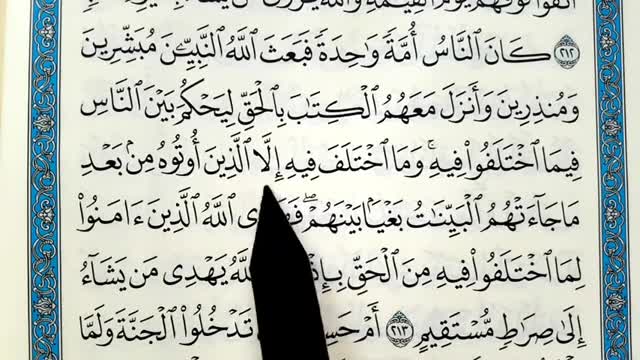 ٱتَّقَوْا۟ فَوْقَهُمْ يَوْمَ ٱلْقِيَٰمَةِ وَٱللَّهُ يَرْزُقُ مَن يَشَآءُ
٢١٢ كَانَ ٱلنَّاسُ أُمَّةً وَٰحِدَةً فَبَعَثَ ٱللَّهُ ٱلنَّبِيِّـۧنَ مُبَشِّرِينَ
وَمُنذِرِينَ وَأَنزَلَ مَعَهُمُ ٱلْكِتَٰبَ بِٱلْحَقِّ لِيَحْكُمَ بَيْنَ ٱلنَّاسِ
فِيمَا ٱخْتَلَفُوا۟ فِيهِ ۚ وَمَا ٱخْتَلَفَ فِيهِ إِلَّا ٱلَّذِينَ أُوتُوهُ مِنۢ بَعْدِ
مَا جَآءَتْهُمُ ٱلْبَيِّنَٰتُ بَغْيًۢا بَيْنَهُمْ ۖ ٱللَّهُ ٱلَّذِينَ ءَامَنُوا۟
لِمَا ٱخْتَلَفُوا۟ فِيهِ مِنَ ٱلْحَقِّ يَهْدِى مَن يَشَآءُ
إِلَىٰ صِرَٰطٍ مُّسْتَقِيمٍ ٢١٣ أَمْ تَدْخُلُوا۟ ٱلْجَنَّةَ وَلَمَّا